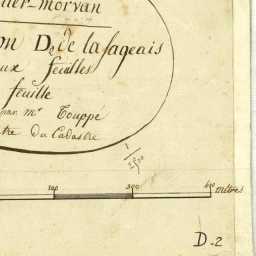 ller-morvan
on D. de la fageais
ux feuilles
feuille
par mr Touppé
tre du Cadastre
1/2500
mètres
D.2